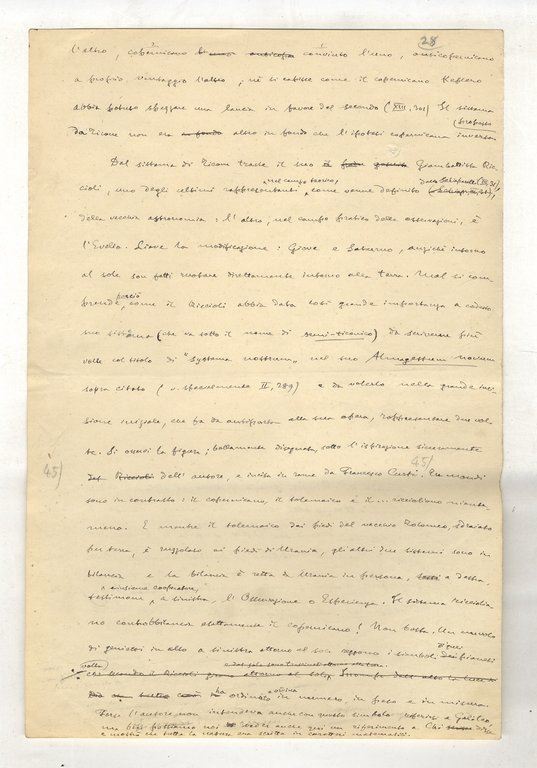 28
l'altro, copernicano convinto l'uno, anticopernicano
a proprio vantaggio l'altro, nè si capisce come il copernicano Keplero
abbia potuto spezzare una lancia in favore del secondo (XIII, 301) Il sistema
proposto
da Ticone non era altro in fondo che l'ipotesi copernicana inversa.
Dal sistema di Ticone trasse il suo Giambattista Ric-
cioli, uno degli ultimi rappresentanti, nel campo teorico, come venne definito dallo Schiaparelli
della vecchia astronomia: l'altro, nel campo pratico delle osservazioni, è
l'Evelio. Lieve la modificazione: Giove e Saturno, anzichè intorno
al sole son fatti ruotare direttamente intorno alla terra. Mal si com-
prende perciò, come il Riccioli abbia dato così grande importanza a codesto
suo sistema (che va sotto il nome di semi-ticonico) da scrivere più
volte col titolo di "Systema nostrum" nel suo Almagestum novum
sopra citato (v. specialmente II, 289) e da volerlo nella grande inci-
sione iniziale, che fa da antiporta alla sua opera, rappresentare due vol-
te. Si osservi la figura; bellamente disegnata, sotto l'ispirazione sicuramente
45/
45/
Riccioli dell'autore, e incisa in rame da Francesco Curti. Tre mondi
sono in contrasto: il copernicano, il tolemaico e il ... riccioliano nienta-
meno. E mentre il tolemaico dai piedi del vecchio Tolomeo, sdraiato
per terra, è ruzzolato ai piedi di Urania, gli altri due sistemi sono in
bilancia e la bilancia è retta da Urania in persona, a destra,
e insieme cooperatore,
testimone a sinistra, l'Osservazione o Esperienza. Il sistema ricciolia-
no controbbilancia esattamente il copernicano! Non basta. Un nuvolo
di genietti in alto a sinistra attorno al sole reggono i simboli dei pianeti
ordinato in numero, in peso e in misura.
Forse l'autore non intendeva anche con questo simbolo riferirsi a Galileo,
ma ben possiamo noi vederci anche qui un riferimento a Chi disse
e mostrò che tutta la natura era scritta in caratteri matematici.